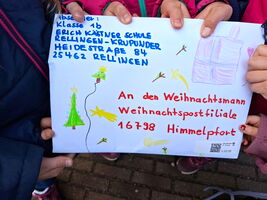 Klasse 1b
ERICH KÄSTNER SCHULE
RELLINGEN-KRUPUNDER
HEIDESTRAßE 84
25462 RELLINGEN
An den Weihnachtsmann
Weihnachtspostfiliale
16798 Himmelpfort